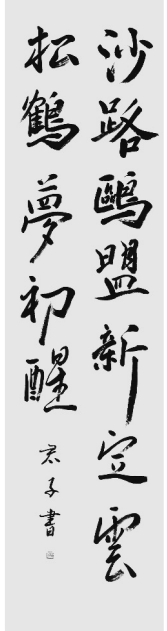 沙路鷗盟新定雲
松鶴夢初醒
君子書